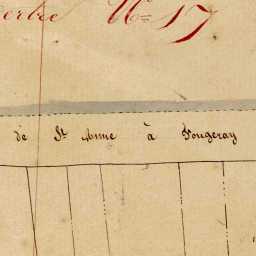 erte N= 17
de St Anne à Fougeray